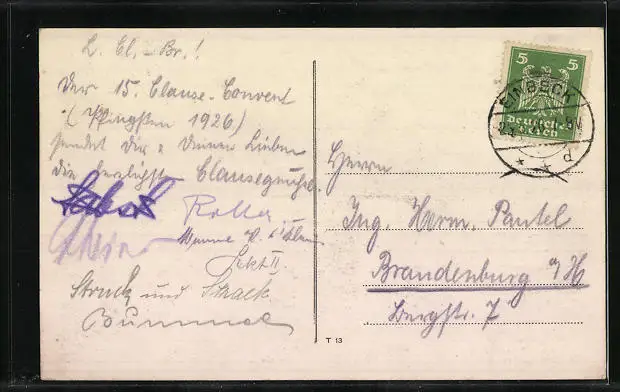 L. Cl.-Br.!
Der 15. Clause-Convent
(Pfingsten 1926)
sendet Dir u Deinen Lieben
die herzlichsten Clausegrüße.
Rotter
Fckt II.
Struck und Noack
Bummel
5 5
Deutsches Reich
EINBECK
d
Herrn
Ing. Herm. Pantel
Brandenburg a/H
Bergstr. 7
T 13